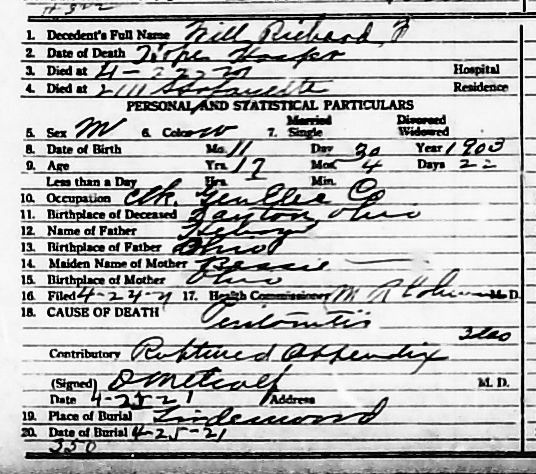 1. Decedent's Full Name Will, Richard F
2. Date of Death Hope Hosp
3. Died at 4-22-21 Hospital
4. Died at 2111 S Lafayette Residence
PERSONAL AND STATISTICAL PARTICULARS
5. Sex M 6. Color W 7. Married Single Divorced Widowed
8. Date of Birth Mo. 11 Day 30 Year 1903
9. Age Yrs. 17 Mos. 4 Days 22
Less than a Day Hrs. Min.
10. Occupation Clk. Gen Elec Co
11. Birthplace of Deceased Dayton, Ohio
12. Name of Father
13. Birthplace of Father Ohio
14. Maiden Name of Mother Bessie —
15. Birthplace of Mother Ohio
16. Filed 4-24-21 17. Health Commissioner M. D.
18. CAUSE OF DEATH Peritonitis
3 das
Contributory Ruptured Appendix
(Signed) D Metcalf M. D.
Date 4-23-21 Address
19. Place of Burial Lindenwood
20. Date of Burial 4-25-21
350